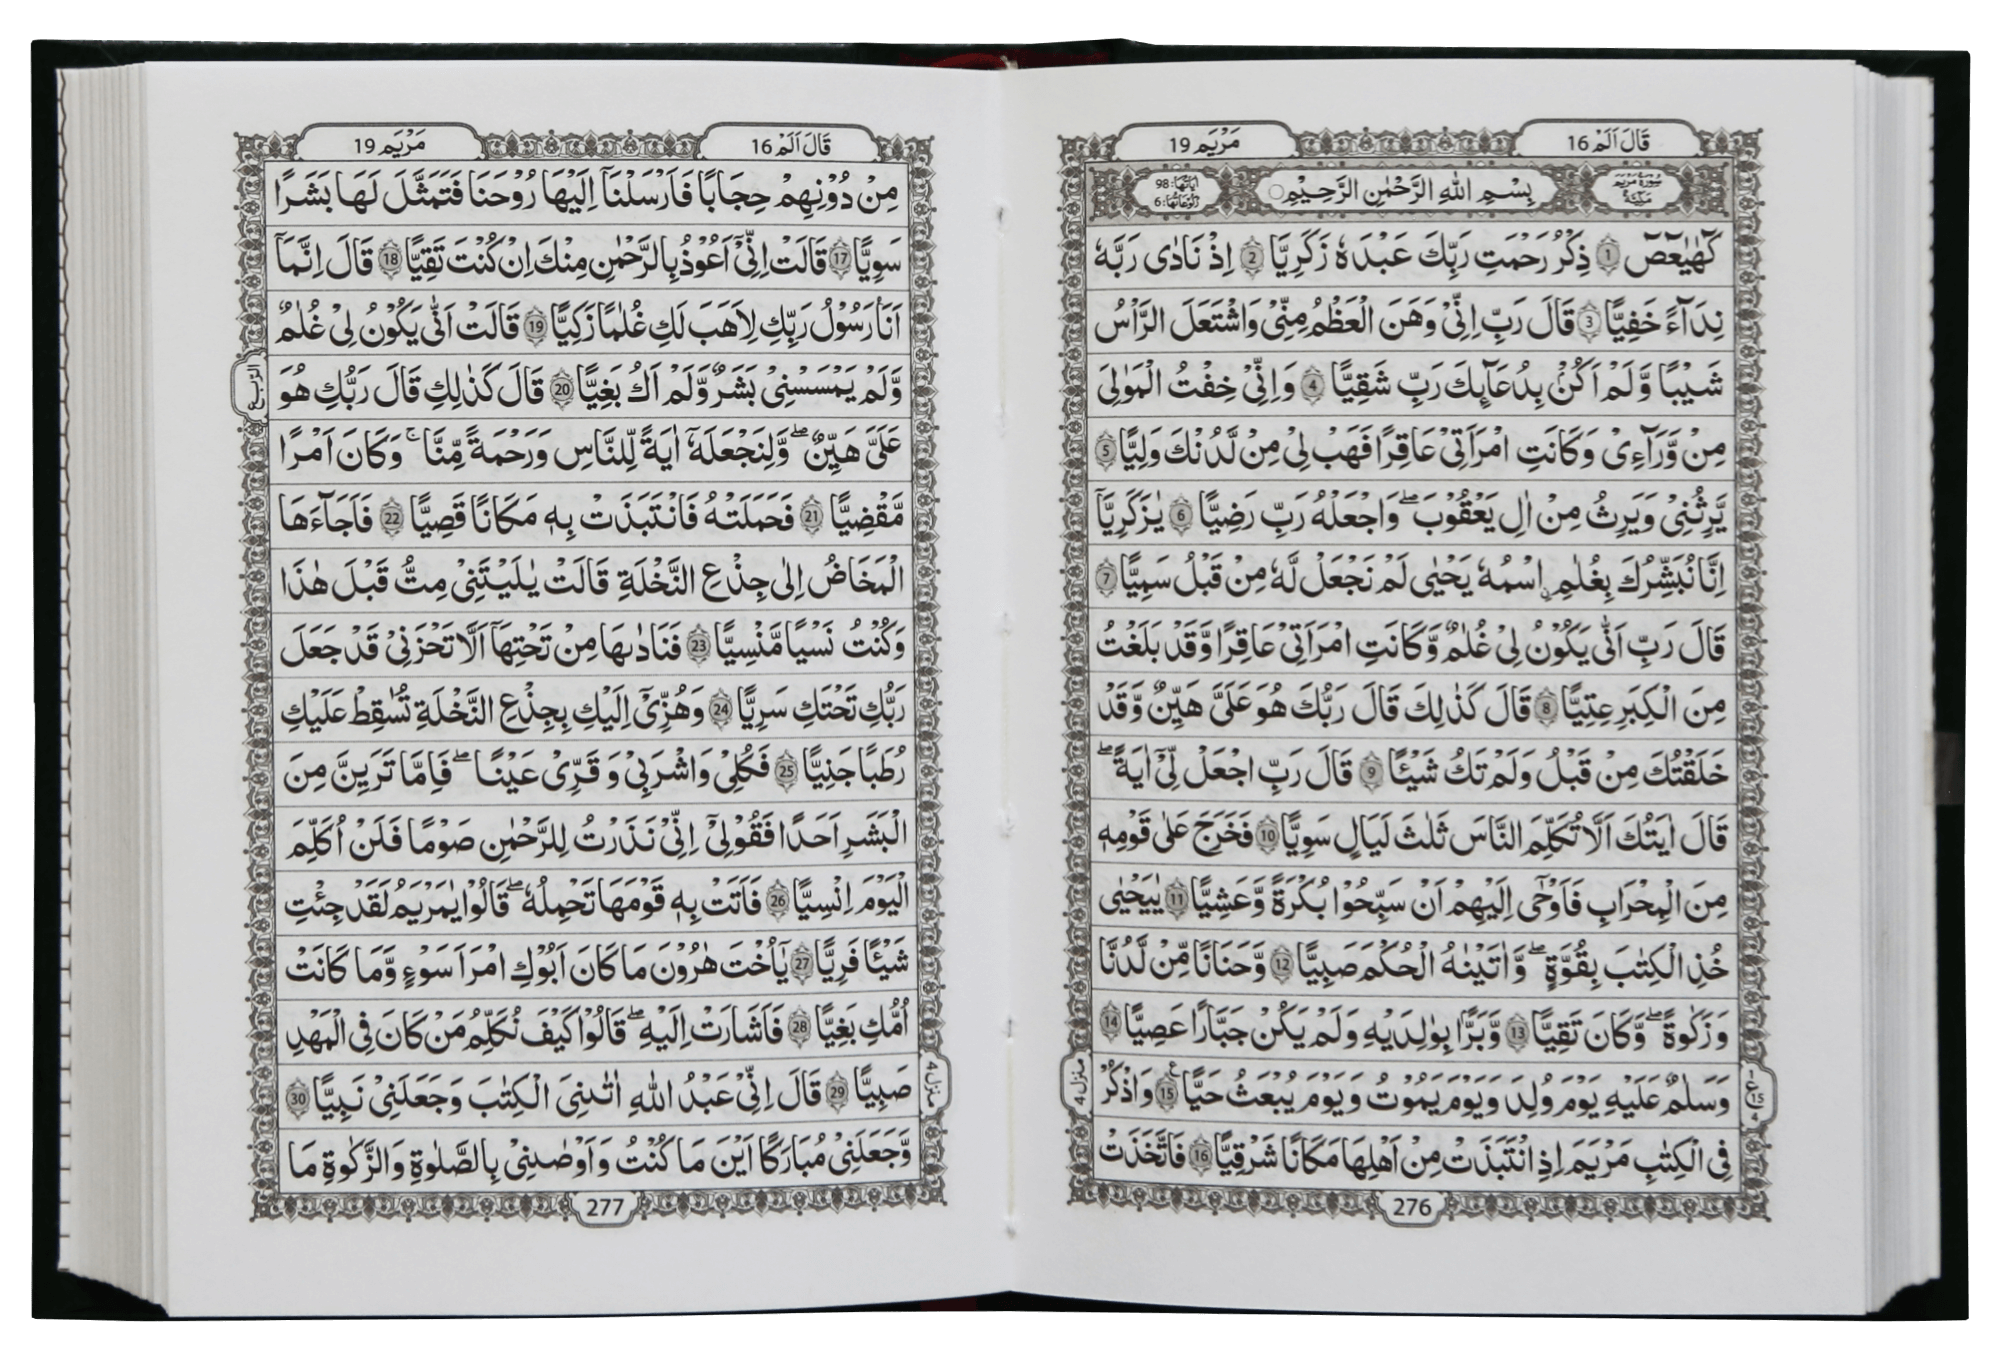 قَالَ اَلَمْ 16
مَرْيَم 19
سُوْرَةُ مَرْيَمَ مَكِّيَّةٌ
بِسْمِ اللّٰهِ الرَّحْمٰنِ الرَّحِيْمِ
اٰيَاتُهَا: 98 رُكُوْعَاتُهَا: 6
كٓهٰيٰعٓصٓ 1 ذِكْرُ رَحْمَتِ رَبِّكَ عَبْدَهٗ زَكَرِيَّا 2 اِذْ نَادٰى رَبَّهٗ
نِدَآءً خَفِيًّا 3 قَالَ رَبِّ اِنِّىْ وَهَنَ الْعَظْمُ مِنِّىْ وَاشْتَعَلَ الرَّاْسُ
شَيْبًا وَّلَمْ اَكُنْۢ بِدُعَآئِكَ رَبِّ شَقِيًّا 4 وَاِنِّىْ خِفْتُ الْمَوَالِىَ
مِنْ وَّرَآءِىْ وَكَانَتِ امْرَاَتِىْ عَاقِرًا فَهَبْ لِىْ مِنْ لَّدُنْكَ وَلِيًّا 5
يَّرِثُنِىْ وَيَرِثُ مِنْ اٰلِ يَعْقُوْبَ ۖ وَاجْعَلْهُ رَبِّ رَضِيًّا 6 يٰزَكَرِيَّآ
اِنَّا نُبَشِّرُكَ بِغُلٰمِ ۨاسْمُهٗ يَحْيٰى لَمْ نَجْعَلْ لَّهٗ مِنْ قَبْلُ سَمِيًّا 7
قَالَ رَبِّ اَنّٰى يَكُوْنُ لِىْ غُلٰمٌ وَّكَانَتِ امْرَاَتِىْ عَاقِرًا وَّقَدْ بَلَغْتُ
مِنَ الْكِبَرِ عِتِيًّا 8 قَالَ كَذٰلِكَ قَالَ رَبُّكَ هُوَ عَلَىَّ هَيِّنٌ وَّقَدْ
خَلَقْتُكَ مِنْ قَبْلُ وَلَمْ تَكُ شَيْـًٔا 9 قَالَ رَبِّ اجْعَلْ لِّىْٓ اٰيَةً ۖ
قَالَ اٰيَتُكَ اَلَّا تُكَلِّمَ النَّاسَ ثَلٰثَ لَيَالٍ سَوِيًّا 10 فَخَرَجَ عَلٰى قَوْمِهٖ
مِنَ الْمِحْرَابِ فَاَوْحٰٓى اِلَيْهِمْ اَنْ سَبِّحُوْا بُكْرَةً وَّعَشِيًّا 11 يٰيَحْيٰى
خُذِ الْكِتٰبَ بِقُوَّةٍ ۖ وَّاٰتَيْنٰهُ الْحُكْمَ صَبِيًّا 12 وَّحَنَانًا مِّنْ لَّدُنَّا
وَزَكٰوةً ۖ وَّكَانَ تَقِيًّا 13 وَّبَرًّا بِۢوَالِدَيْهِ وَلَمْ يَكُنْ جَبَّارًا عَصِيًّا 14
وَسَلٰمٌ عَلَيْهِ يَوْمَ وُلِدَ وَيَوْمَ يَمُوْتُ وَيَوْمَ يُبْعَثُ حَيًّا 15 وَاذْكُرْ
فِى الْكِتٰبِ مَرْيَمَ اِذِ انْتَبَذَتْ مِنْ اَهْلِهَا مَكَانًا شَرْقِيًّا 16 فَاتَّخَذَتْ
ع 15 4
منزل 4
276
قَالَ اَلَمْ 16
مَرْيَم 19
مِنْ دُوْنِهِمْ حِجَابًا فَاَرْسَلْنَآ اِلَيْهَا رُوْحَنَا فَتَمَثَّلَ لَهَا بَشَرًا
سَوِيًّا 17 قَالَتْ اِنِّىْٓ اَعُوْذُ بِالرَّحْمٰنِ مِنْكَ اِنْ كُنْتَ تَقِيًّا 18 قَالَ اِنَّمَآ
اَنَا رَسُوْلُ رَبِّكِ لِاَهَبَ لَكِ غُلٰمًا زَكِيًّا 19 قَالَتْ اَنّٰى يَكُوْنُ لِىْ غُلٰمٌ
وَّلَمْ يَمْسَسْنِىْ بَشَرٌ وَّلَمْ اَكُ بَغِيًّا 20 قَالَ كَذٰلِكِ قَالَ رَبُّكِ هُوَ
عَلَىَّ هَيِّنٌ ۖ وَّلِنَجْعَلَهٗٓ اٰيَةً لِّلنَّاسِ وَرَحْمَةً مِّنَّا ۚ وَكَانَ اَمْرًا
مَّقْضِيًّا 21 فَحَمَلَتْهُ فَانْتَبَذَتْ بِهٖ مَكَانًا قَصِيًّا 22 فَاَجَآءَهَا
الْمَخَاضُ اِلٰى جِذْعِ النَّخْلَةِ قَالَتْ يٰلَيْتَنِىْ مِتُّ قَبْلَ هٰذَا
وَكُنْتُ نَسْيًا مَّنْسِيًّا 23 فَنَادٰىهَا مِنْ تَحْتِهَآ اَلَّا تَحْزَنِىْ قَدْ جَعَلَ
رَبُّكِ تَحْتَكِ سَرِيًّا 24 وَهُزِّىْٓ اِلَيْكِ بِجِذْعِ النَّخْلَةِ تُسٰقِطْ عَلَيْكِ
رُطَبًا جَنِيًّا 25 فَكُلِىْ وَاشْرَبِىْ وَقَرِّىْ عَيْنًا ۖ فَاِمَّا تَرَيِنَّ مِنَ
الْبَشَرِ اَحَدًا فَقُوْلِىْٓ اِنِّىْ نَذَرْتُ لِلرَّحْمٰنِ صَوْمًا فَلَنْ اُكَلِّمَ
الْيَوْمَ اِنْسِيًّا 26 فَاَتَتْ بِهٖ قَوْمَهَا تَحْمِلُهٗ ۖ قَالُوْا يٰمَرْيَمُ لَقَدْ جِئْتِ
شَيْـًٔا فَرِيًّا 27 يٰٓاُخْتَ هٰرُوْنَ مَا كَانَ اَبُوْكِ امْرَاَ سَوْءٍ وَّمَا كَانَتْ
اُمُّكِ بَغِيًّا 28 فَاَشَارَتْ اِلَيْهِ ۖ قَالُوْا كَيْفَ نُكَلِّمُ مَنْ كَانَ فِى الْمَهْدِ
صَبِيًّا 29 قَالَ اِنِّىْ عَبْدُ اللّٰهِ اٰتٰىنِىَ الْكِتٰبَ وَجَعَلَنِىْ نَبِيًّا 30
وَّجَعَلَنِىْ مُبَارَكًا اَيْنَ مَا كُنْتُ وَاَوْصٰىنِىْ بِالصَّلٰوةِ وَالزَّكٰوةِ مَا
الربع
منزل 4
277